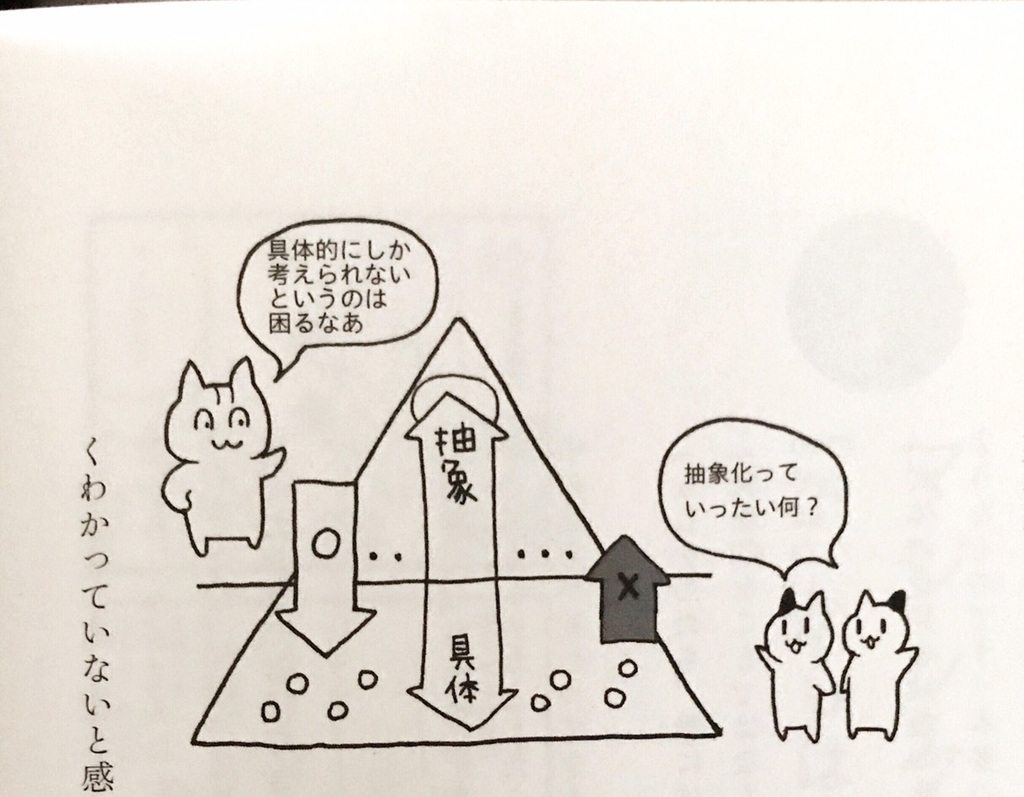 具体的にしか
考えられない
というのは
困るなあ
抽象
具体
×
抽象化って
いったい何？
くわかっていないと感